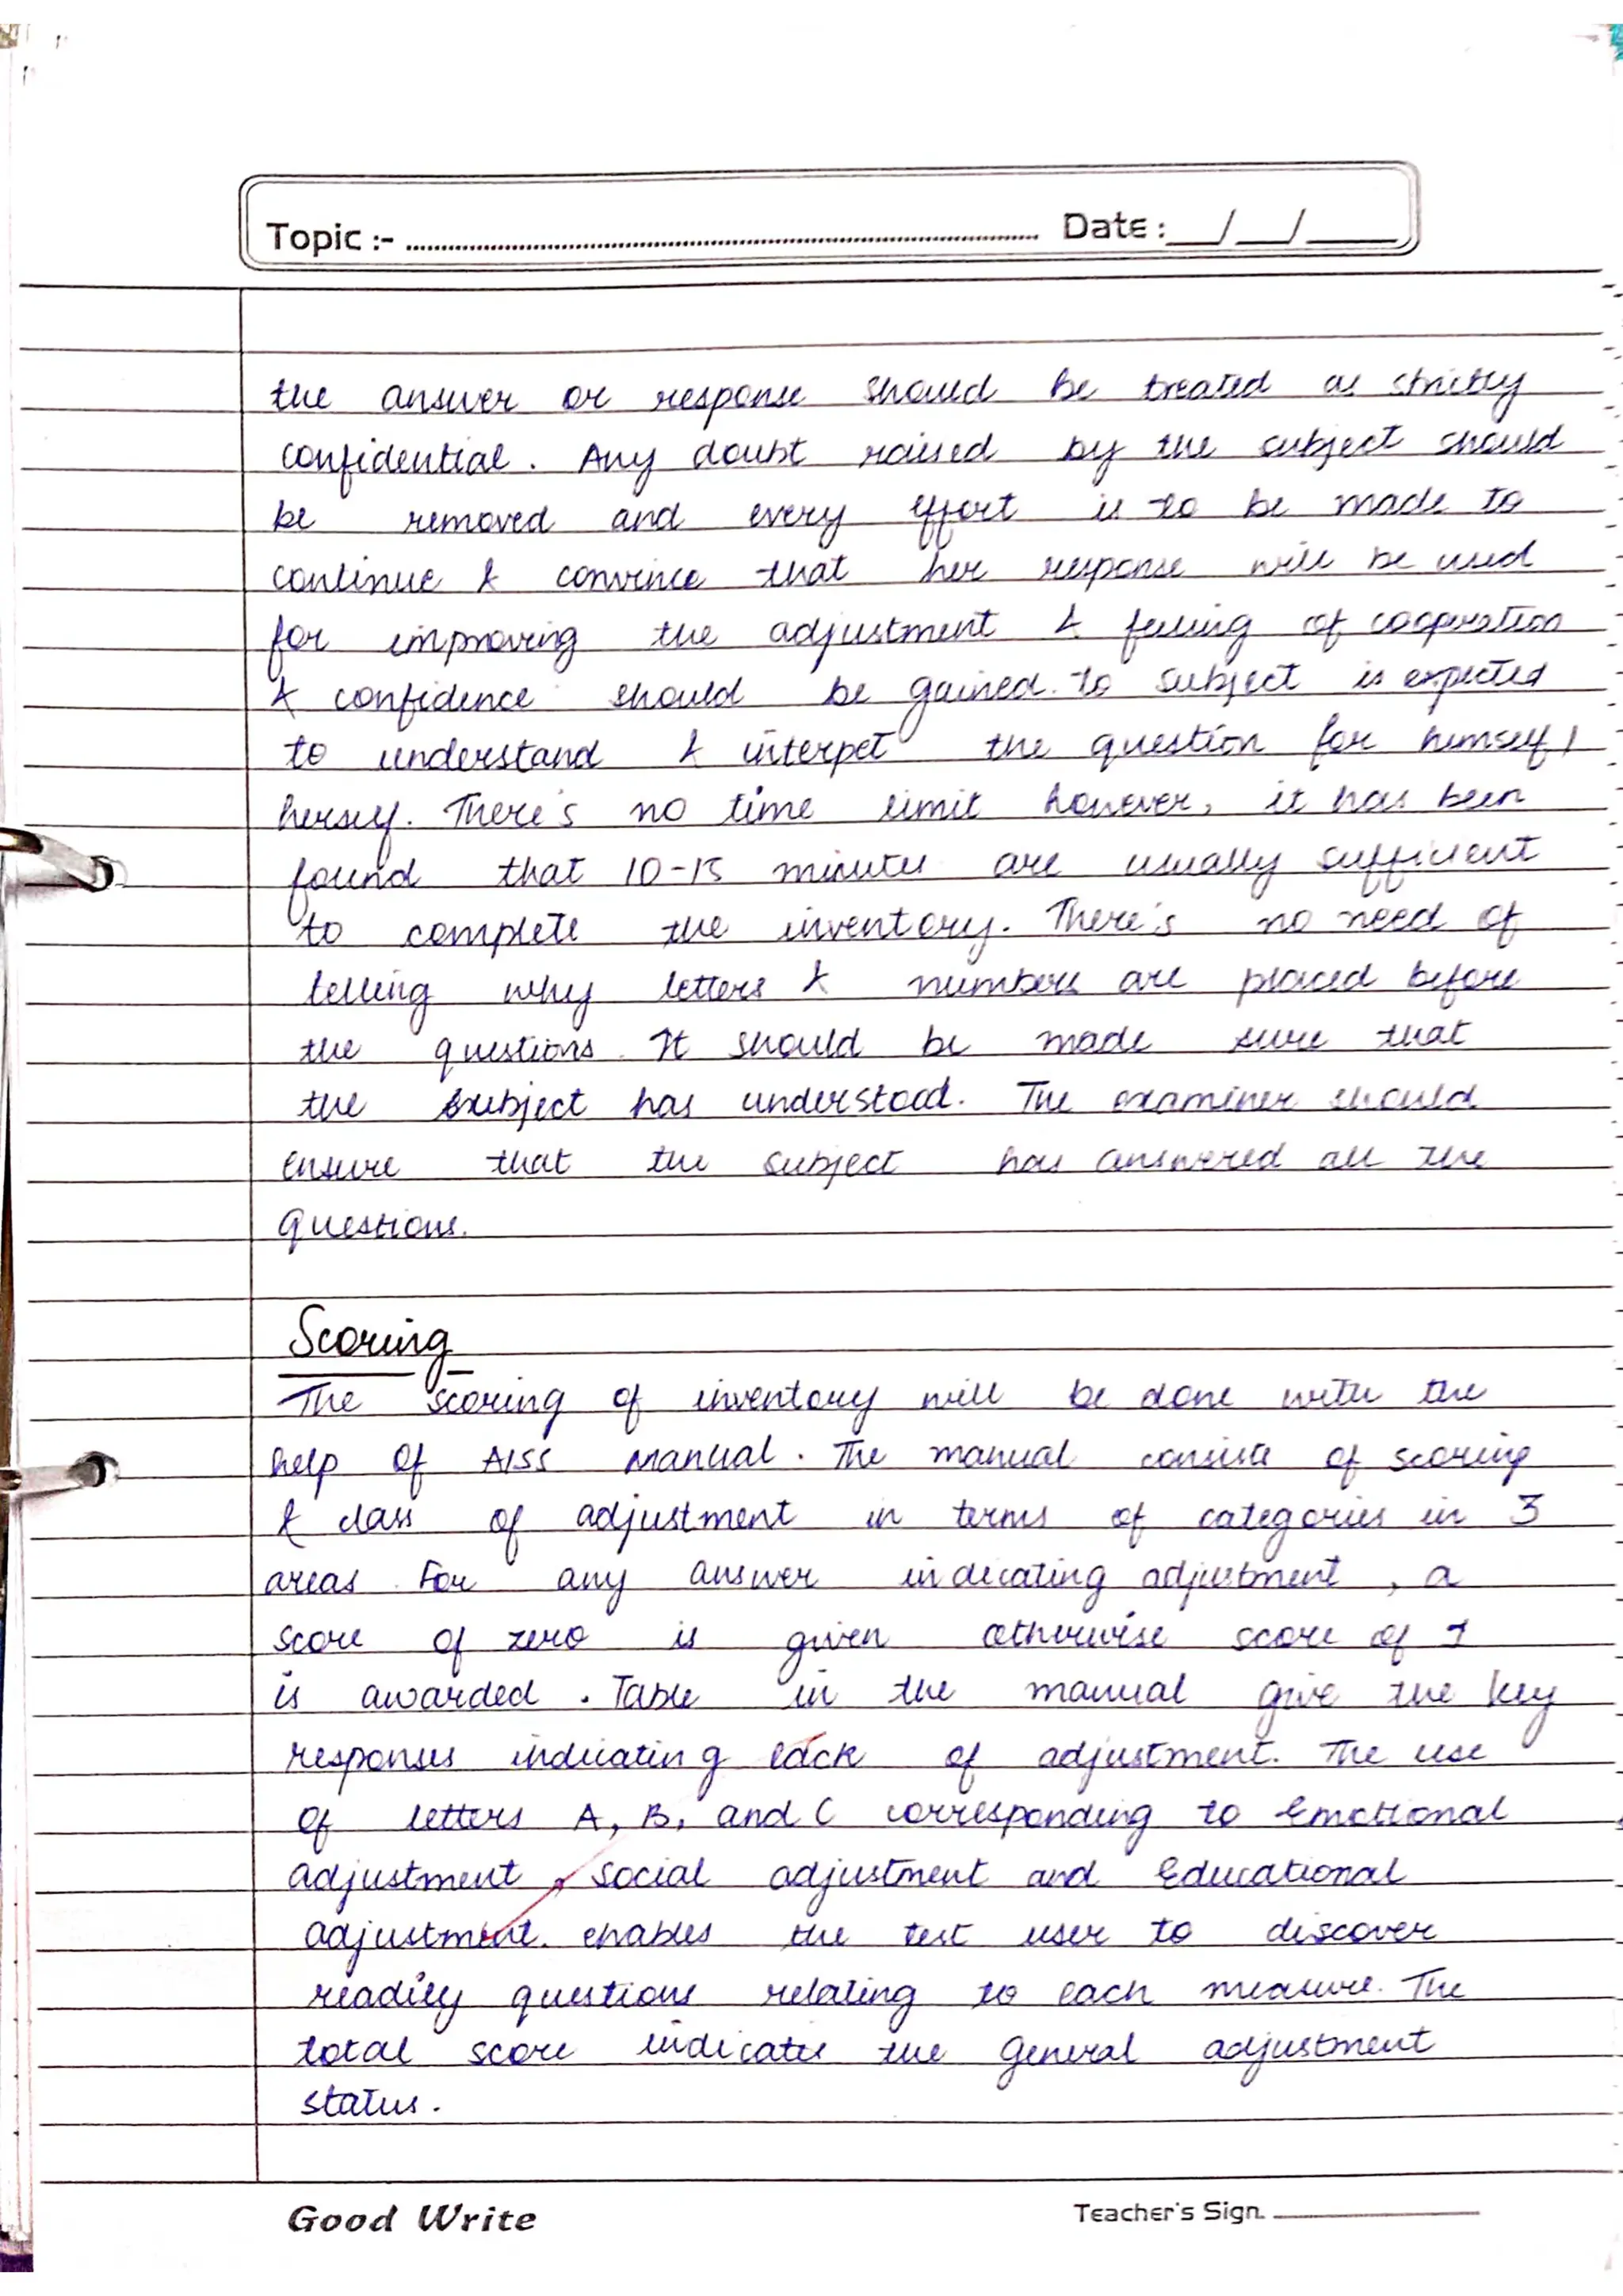 Topic :- ........................ Date : __/__/____
the answer or response should be treated as strictly
confidential. Any doubt raised by the subject should
be removed and every effort is to be made to
continue & convince that her response will be used
for improving the adjustment & feeling of cooperation
& confidence should be gained. To subject is expected
to understand & interpet the question for himself/
herself. There's no time limit however, it has been
found that 10-15 minutes are usually sufficient
to complete the inventory. There's no need of
telling why letters & numbers are placed before
the questions. It should be made sure that
the subject has understood. The examiner should
ensure that the subject has answered all the
questions.
Scoring
The scoring of inventory will be done with the
help of AISS Manual. The manual consists of scoring
& class of adjustment in terms of categories in 3
areas. For any answer indicating adjustment, a
score of zero is given otherwise score of 1
is awarded. Table in the manual give the key
responses indicating lack of adjustment. The use
of letters A, B, and C corresponding to Emotional
adjustment, social adjustment and Educational
adjustment. enables the test user to discover
readily questions relating to each measure. The
total score indicates the general adjustment
status.
Good Write Teacher's Sign.